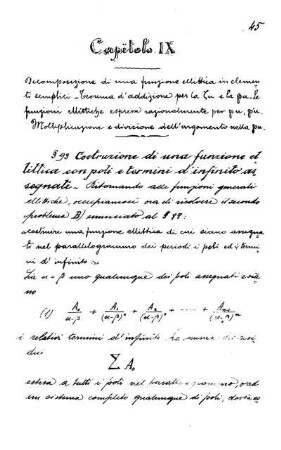 45
Capitolo IX
Decomposizione di una funzione ellittica in elemen-
ti semplici - Teorema d'addizione per la ζu e la pu. Le
funzioni ellittiche espresse razionalmente per pu, p'u.
Moltiplicazione e divisione dell'argomento nella pu.
§ 93 Costruzione di una funzione el
littica con poli e termini d'infinito as
segnati - Ritornando alle funzioni generali
ellittiche, occupiamoci ora di risolvere il secondo
problema B) enunciato al §
costruire una funzione ellittica di cui siano assegna
ti nel parallelogrammo dei periodi i poli ed i termi
ni d'infinito.
Sia u = β uno qualunque dei poli assegnati e sia
no
(1) A₀/(u-β) + A₁/(u-β)² + A₂/(u-β)³ + ---- +
i relativi termini d'infinito. La somma dei resi
dui
∑ A₀
estesa a tutti i poli nel
un sistema completo qualunque di poli,